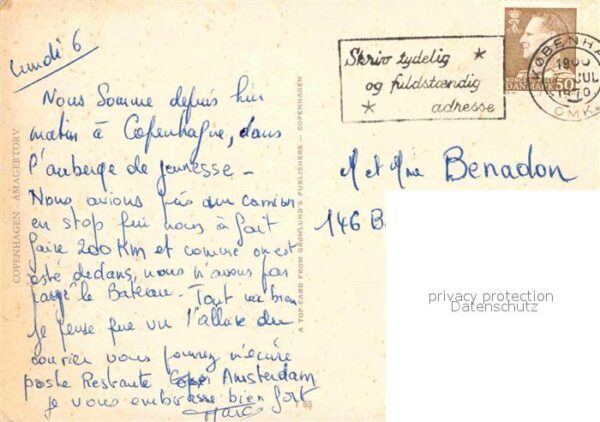 Lundi 6
Nous Somme depuis hier
matin à Copenhague, dans
l'auberge de jeunesse -
Nous avions pris un camion
en stop qui nous à fait
faire 200 Km et comme on est
resté dedans, nous n'avons pas
payé le Bateau. Tout va bien
Je pense que vu l'allure du
courier vous pouvez m'écrire
poste Restante Amsterdam
Je vous embrasse bien fort
Marc
COPENHAGEN - AMAGERTORV
A TOP-CARD FROM GRØNLUND'S PUBLISHERS - COPENHAGEN
T 65
Skriv tydelig
og fuldstændig
adresse
KØBENHA
JUL
1970
OMK.
DANMARK 50
M et Mme Benadon
146 B
privacy protection
Datenschutz